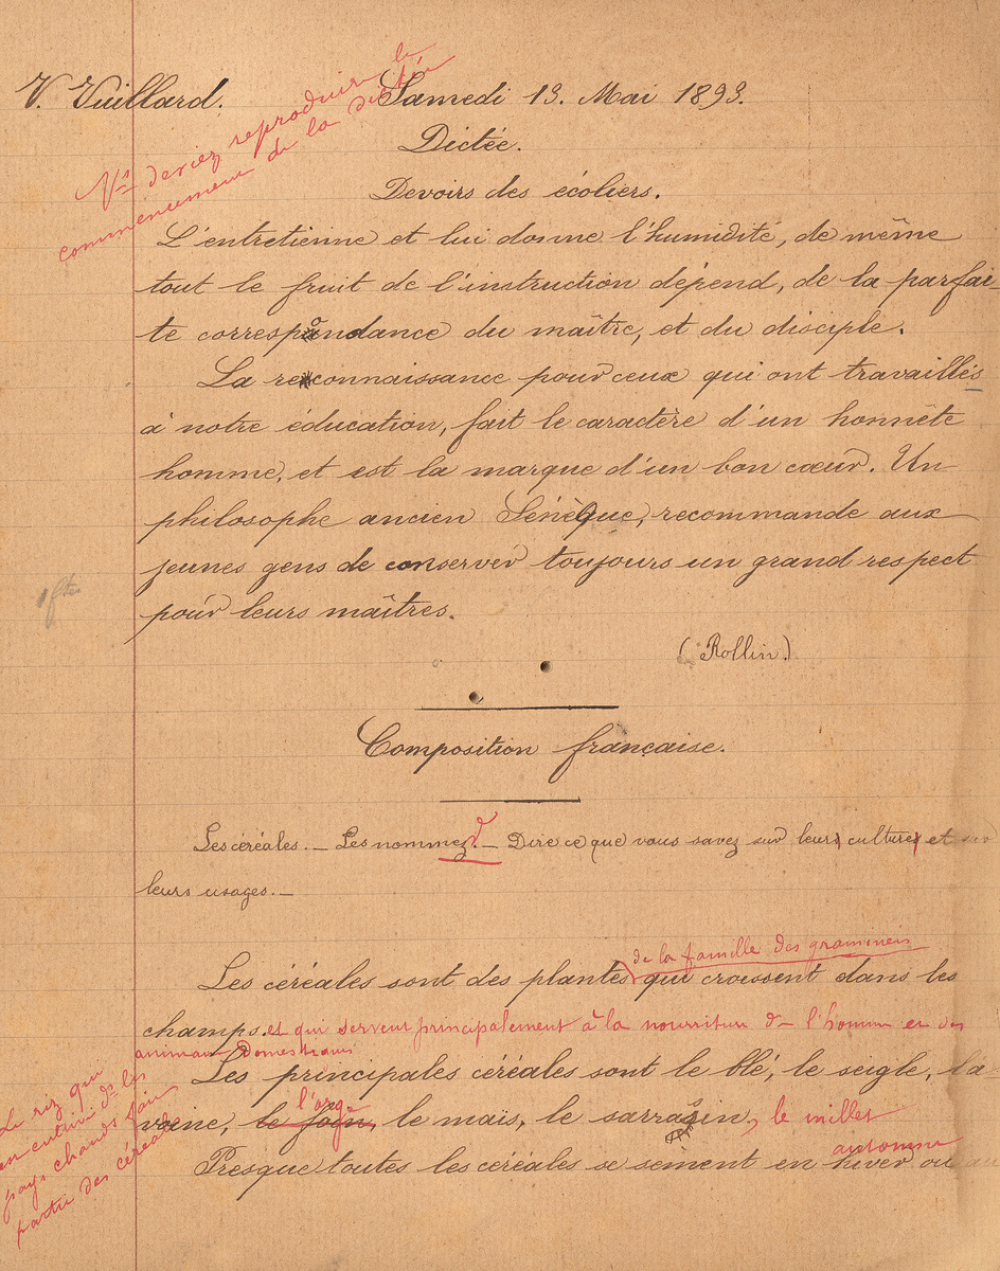 V. Vuillard. Samedi 13. Mai 1893.
Vs devriez reproduire le
commencement de la dictée
Dictée.
Devoirs des écoliers.
L'entretienne et lui donne l'humidité, de même
tout le fruit de l'instruction dépend, de la parfai-
te correspondance du maître, et du disciple.
La reconnaissance pour ceux qui ont travaillés
à notre éducation, fait le caractère d'un honnête
homme, et est la marque d'un bon cœur. Un
philosophe ancien Sénèque, recommande aux
jeunes gens de conserver toujours un grand respect
pour leurs maîtres.
1 fte
(Rollin.)
Composition française.
Les céréales. _ Les nommez. _ Dire ce que vous savez sur leurs cultures et sur
leurs usages. _
de la famille des graminées
Les céréales sont des plantes qui croissent dans les
champs. et qui servent principalement à la nourriture de l'homme et des
animaux domestiques
Les principales céréales sont le blé, le seigle, l'a-
l'orge
voine, le foin, le maïs, le sarrasin, le millet
Le riz que
on cultive ds les
pays chauds fait
partie des céréales
automne
Presque toutes les céréales se sèment en hiver ou au